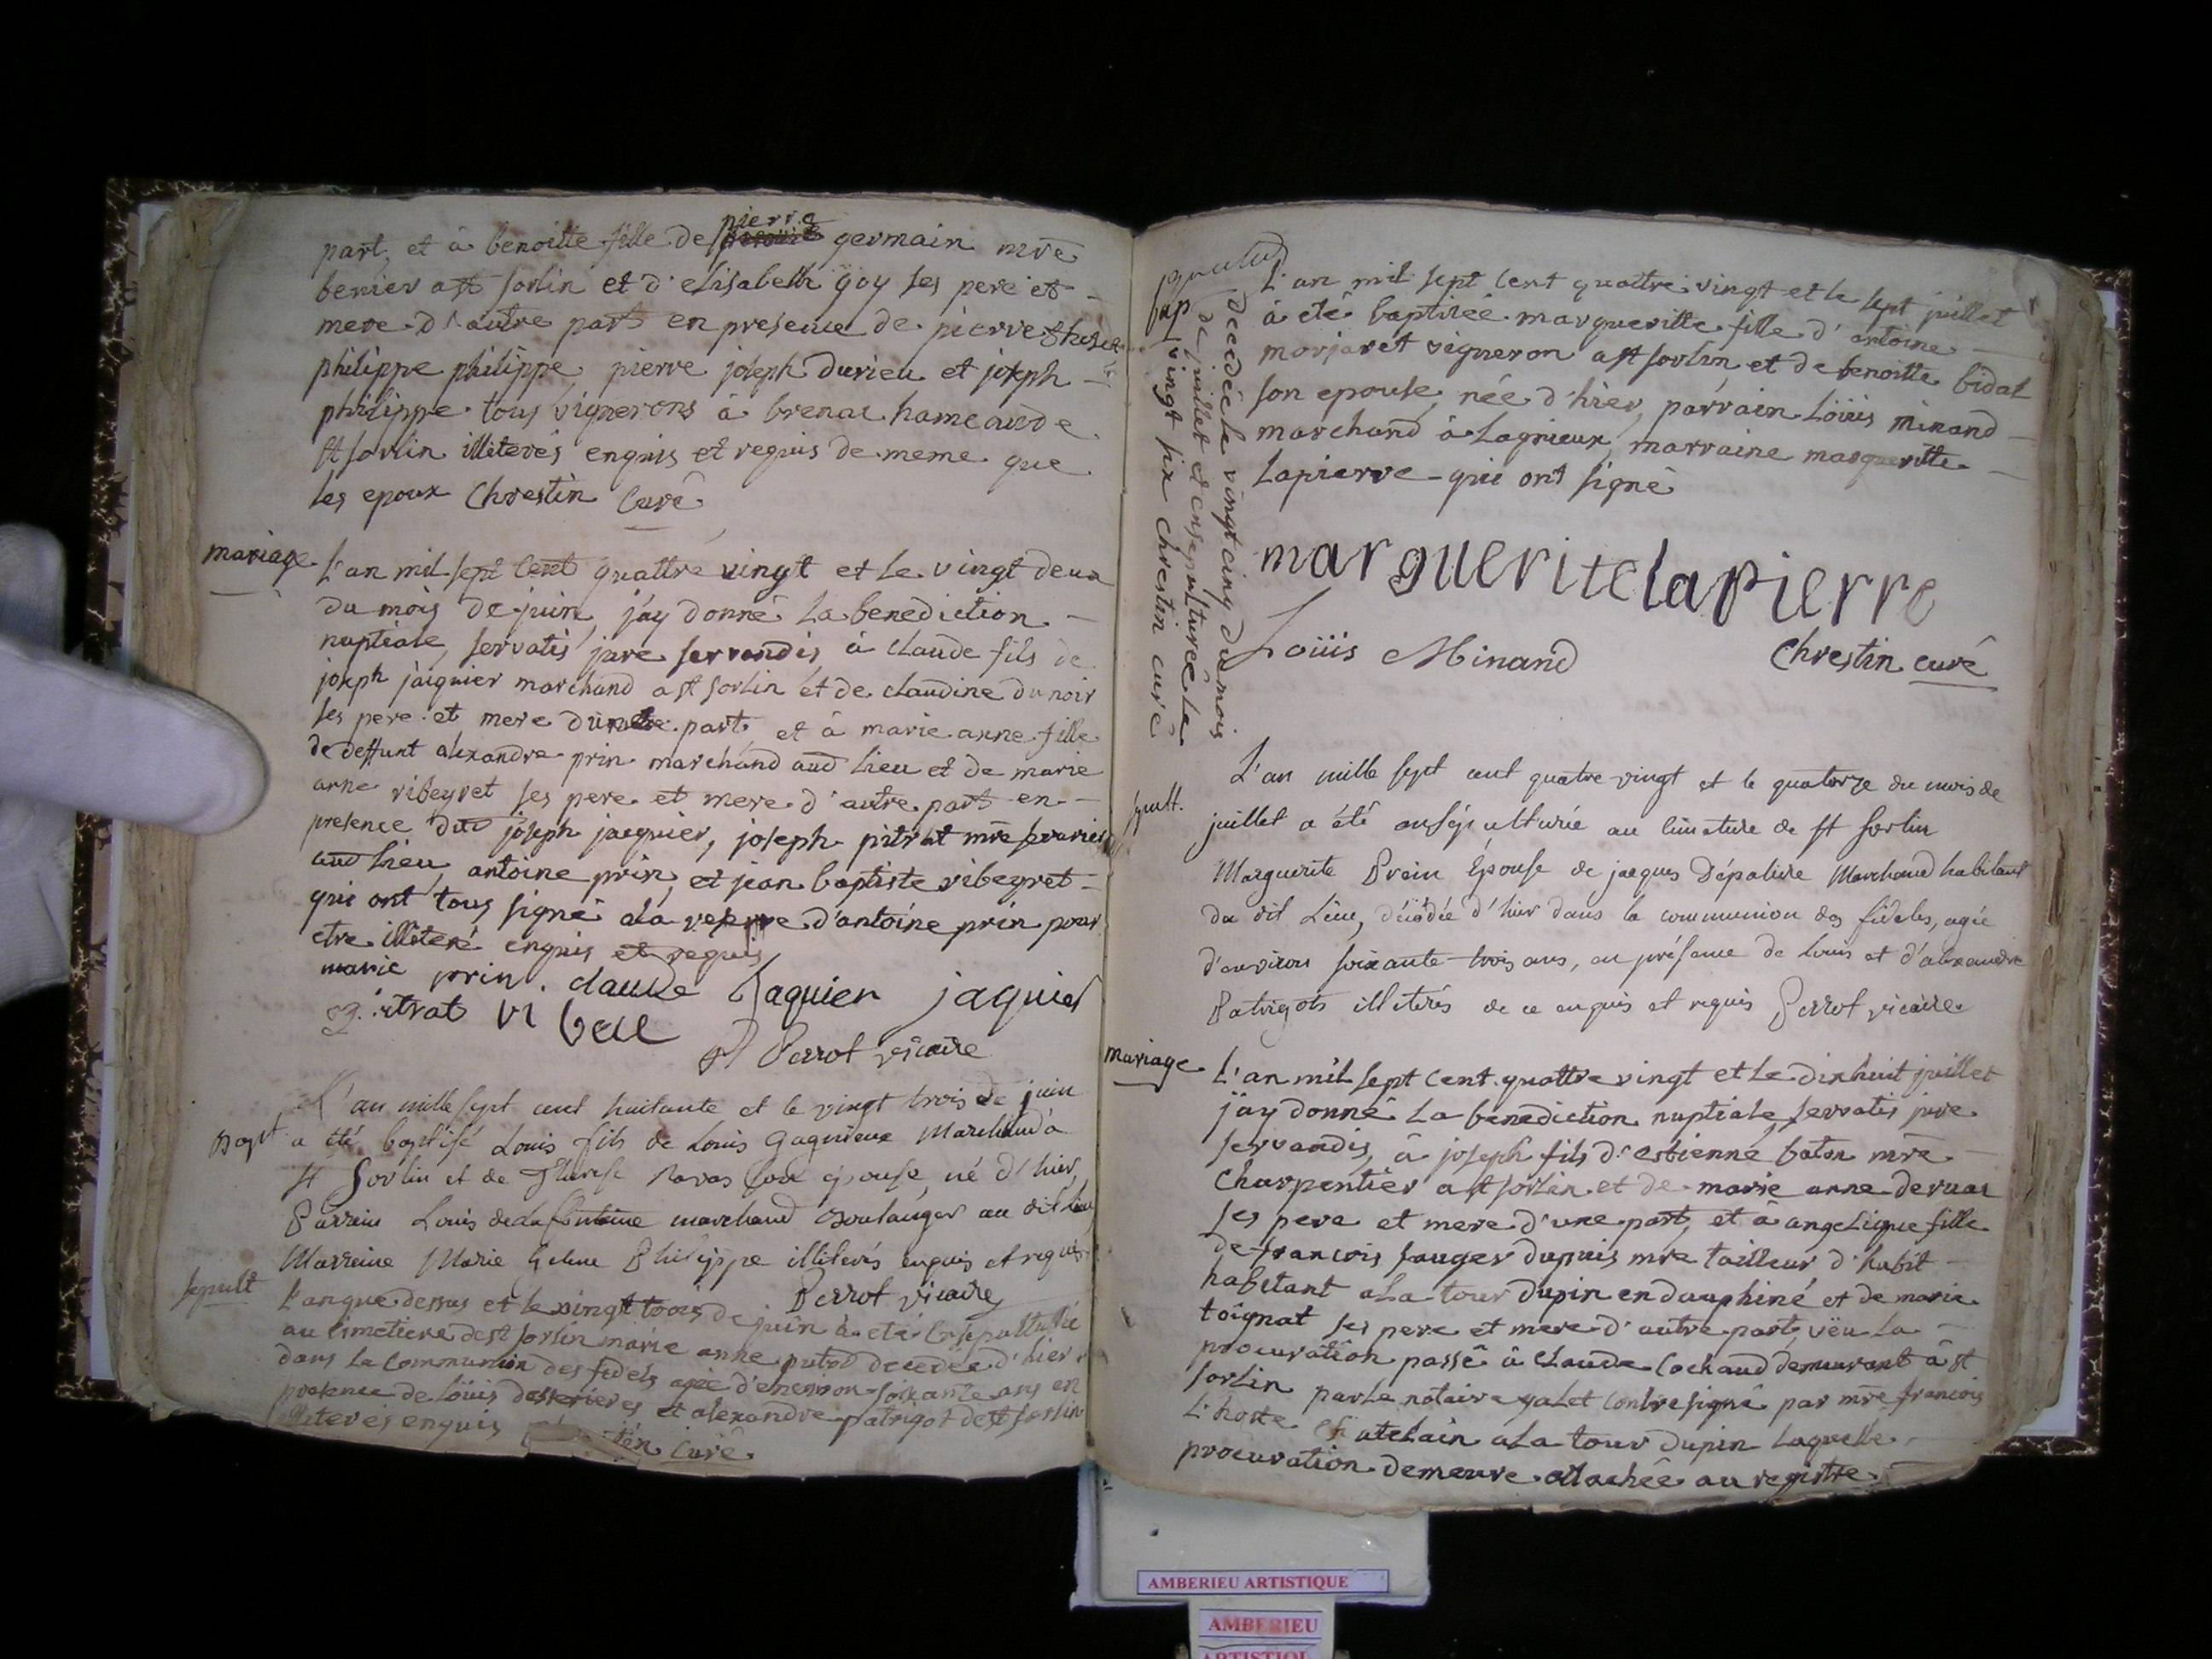 part, et à benoitte fille de pierre germain mre
benier a st sorlin et d'elisabeth goy ses pere et
mere d'autre part en presence de pierre
philippe philippe, pierre joseph durieu et joseph
philippe tous vignerons à brenaz hameau de
st sorlin illiterés enquis et requis de meme que
les epoux Chrestin Curé
mariage
L'an mil sept cent quattre vingt et le vingt deux
du mois de juin, j'ay donné la benediction
nuptiale, servatis jure servandis, à claude fils de
joseph jacquier marchand a st sorlin et de claudine dunoir
ses pere et mere d'une part et à marie anne fille
de deffunt alexandre prin marchand aud lieu et de marie
anne ribeyret ses pere et mere d'autre part en
presence dud joseph jacquier, joseph pitrat mre serrurier
aud lieu, antoine prin, et jean baptiste ribeyret
qui ont tous signé a la reserve d'antoine prin pour
etre illiteré enquis et requis
marie prin. claude Jaquier jaquier
pitrat
Perrot vicaire
Bapt
L'an mille sept cent huitante et le vingt trois de juin
a été baptisé Louis fils de Louis Gagnieux Marchand à
st Sorlin et de Therese Navas son épouse, né d'hier,
Parrein Louis delafontaine marchand Boulanger au dit lieu
Marreine Marie Philippe illiterés enquis et requis
Perrot vicaire
sepult
L'an que dessus et le vingt trois de juin à eté ensepulturée
au cimetiere de st sorlin marie anne decedée d'hier
dans la communion des fidels agée d'environ soixante ans en
presence de Loüis desserieres et alexandre patrigot de st sorlin
illiterés enquis curé
bap
L'an mil sept cent quattre vingt et le sept juillet
à été baptisée margueritte fille d'antoine
morjaret vigneron a st sorlin, et de benoitte bidal
son epouse, née d'hier, parrain Loüis minand
marchand à Lagnieux, marraine margueritte
Lapierre qui ont signé
decedée le vingt cinq du mois
de juillet et ensepulturée le
vingt six Chrestin curé
marguerite lapierre
Loüis Minand
Chrestin curé
sepult.
L'an mille sept cent quatre vingt et le quatorze du mois de
juillet a été enséputurée au cimetiere de st Sorlin
Marguerite Prein Épouse de jacques Dépaliere Marchand habitant
du dit Lieu, décédée d'hier dans la communion des fideles, agée
d'environ soixante-trois ans, en présence de Louis et d'alexandre
Patrigots illiterés de ce enquis et requis Perrot vicaire
mariage
L'an mil sept cent quattre vingt et le dixhuit juillet
j'ay donné la benediction nuptiale, servatis jure
servandis, à joseph fils d'estienne baton mre
Charpentier a st sorlin et de marie anne dervas
ses pere et mere d'une part, et à angelique fille
de francois sauger dupuis mre tailleur d'habit
habitant a la tour dupin en dauphiné et de marie
toignat ses pere et mere d'autre part, vëu la
procuration passé à claude Cochaud demeurant à st
sorlin par le notaire galet contresigné par mre francois
L'hoste Chatelain a la tour dupin laquelle
procuration demeure attachée au registre
AMBERIEU ARTISTIQUE
AMBERIEU
ARTISTIQUE